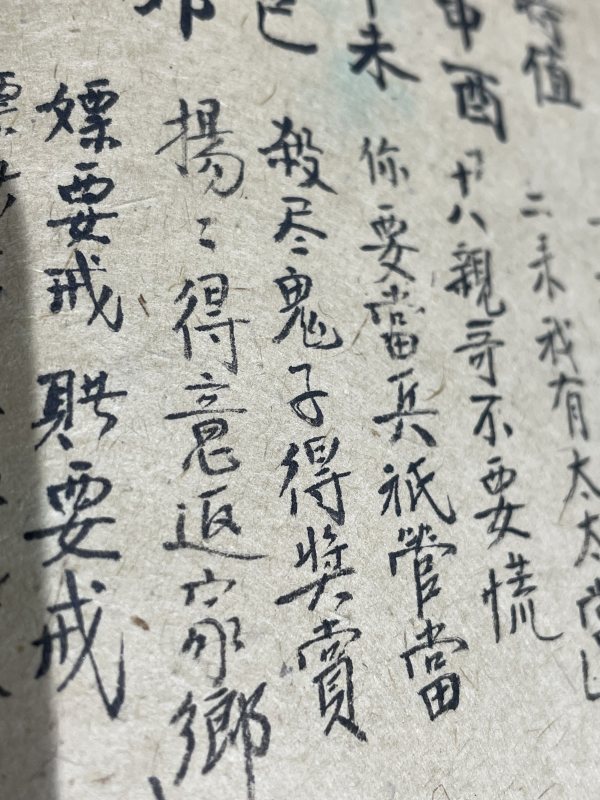 值
二来我有太太當
申酉
十八親哥不要慌
未
你要當兵祇管當
巳
殺尽鬼子得奬賞
卯
揚〻得意返家鄉
嫖要戒 賭要戒